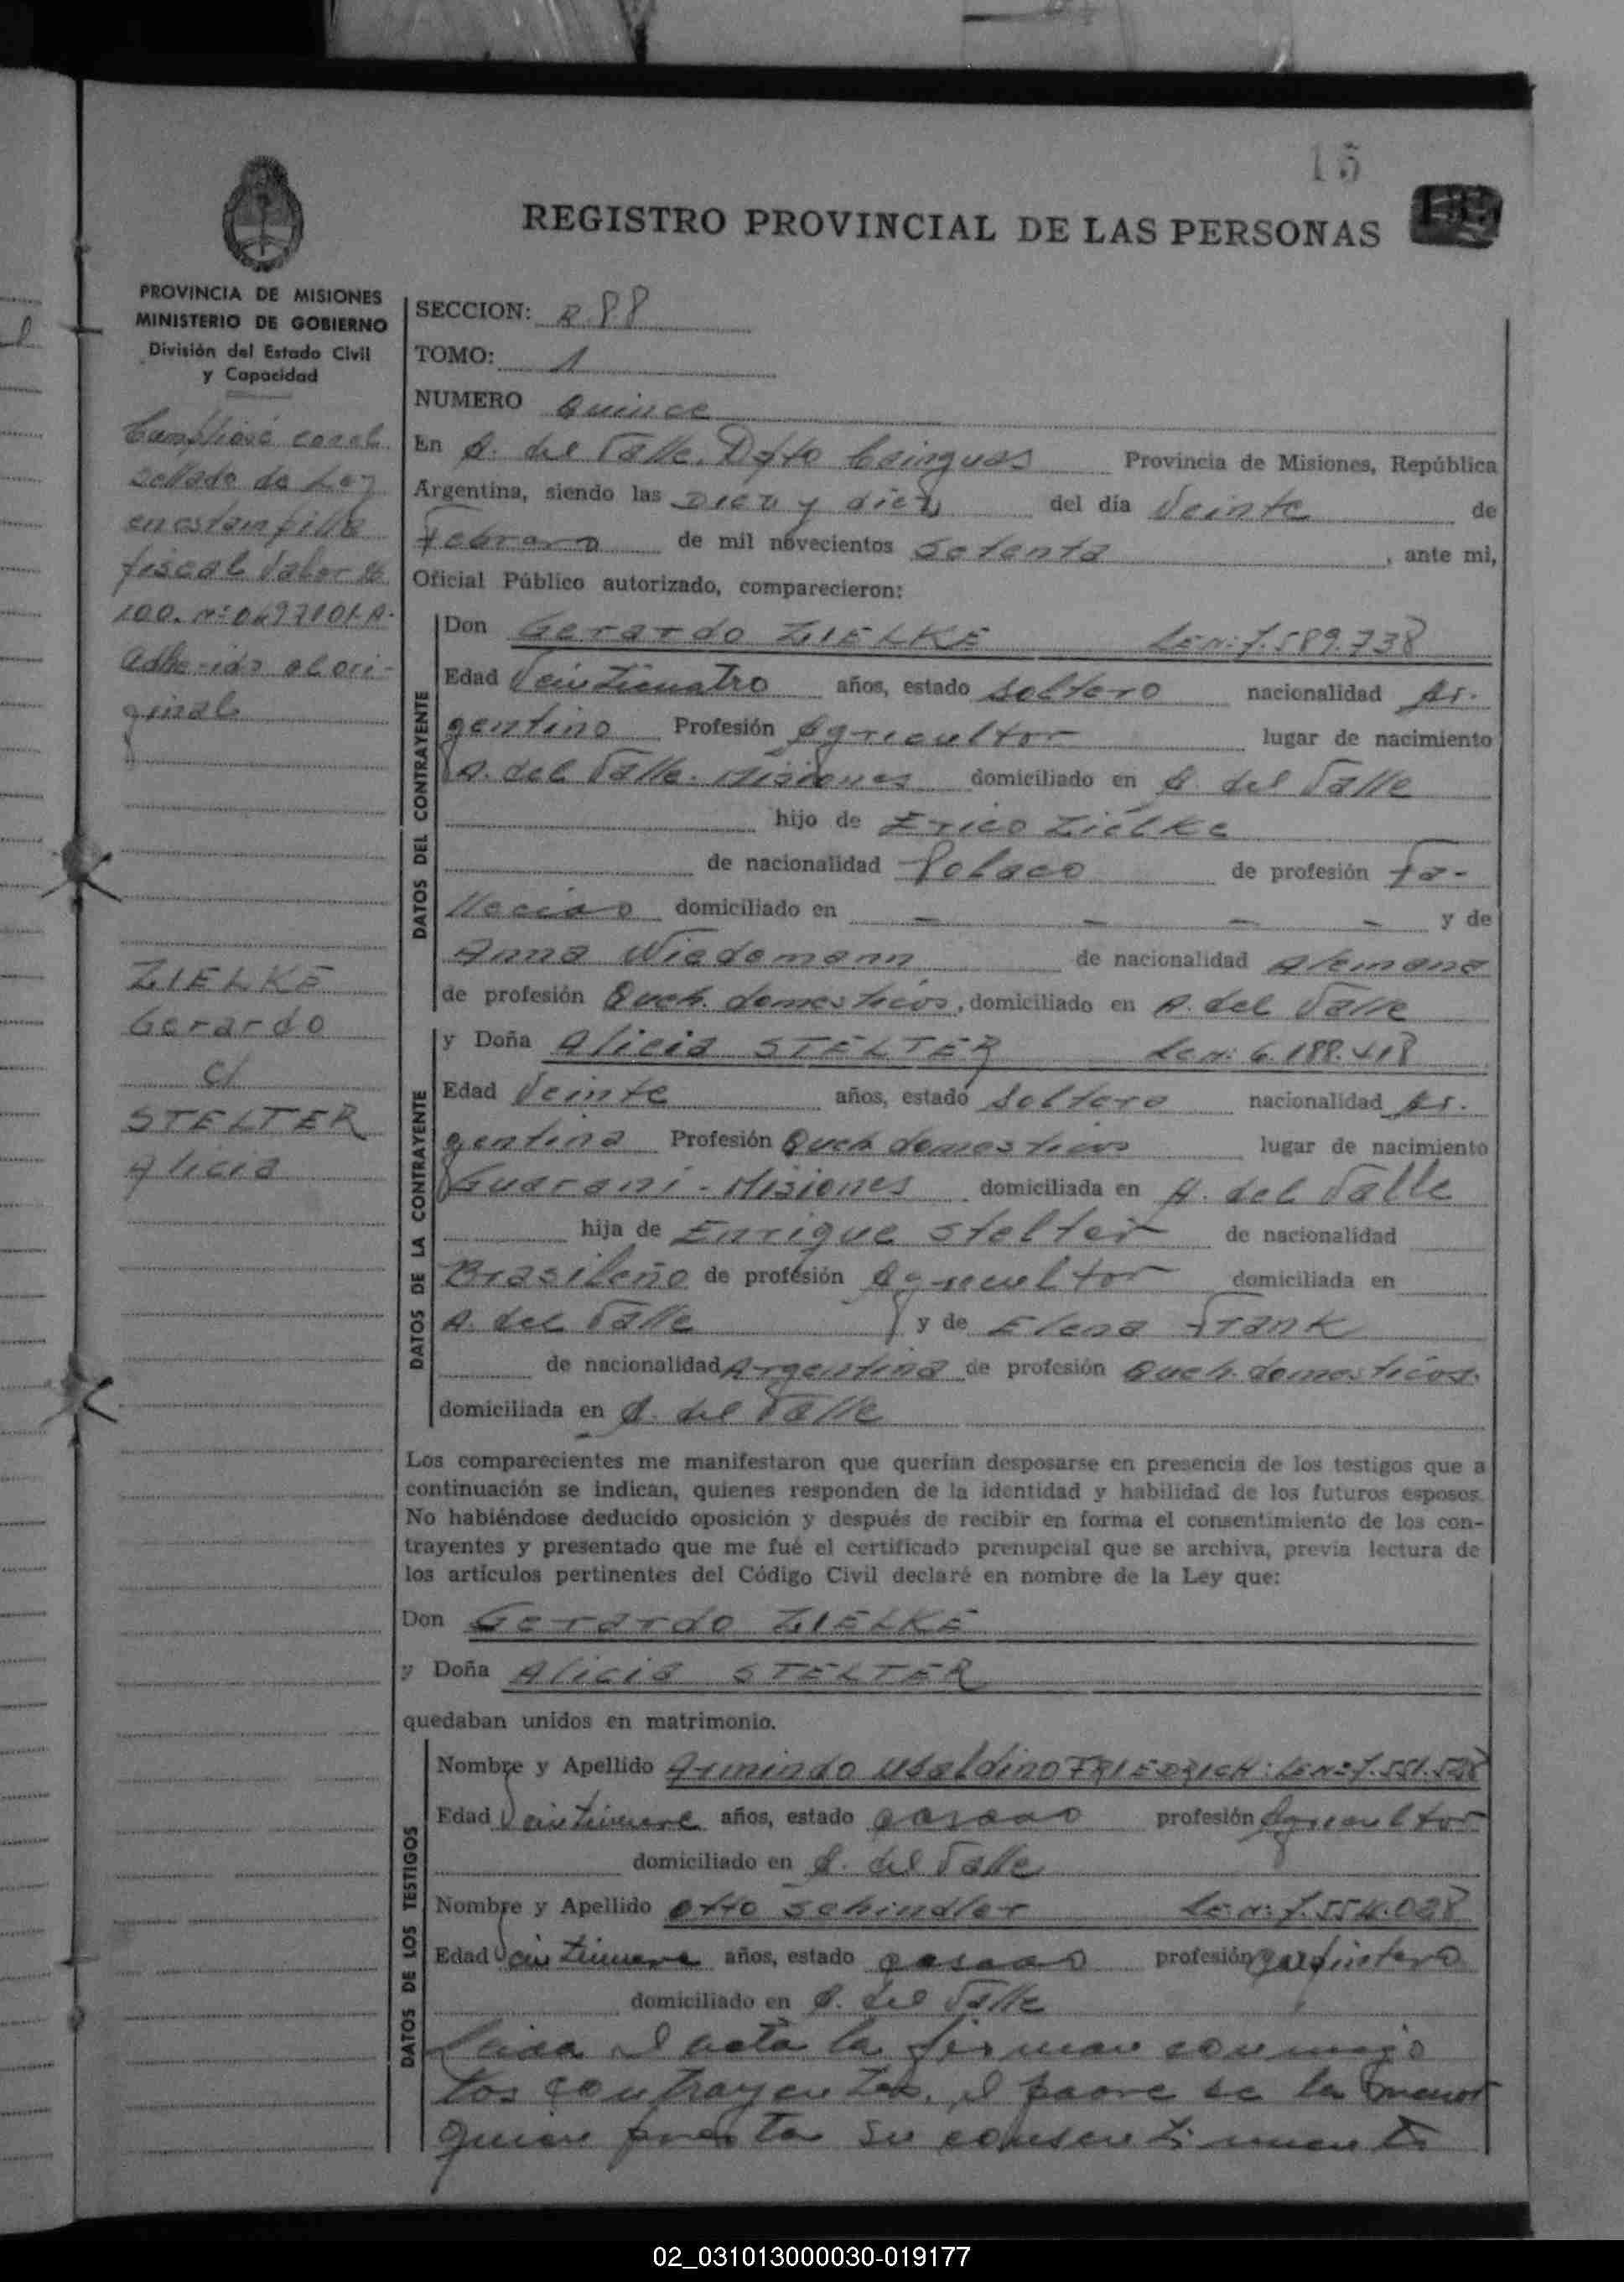 15
REGISTRO PROVINCIAL DE LAS PERSONAS
PROVINCIA DE MISIONES
MINISTERIO DE GOBIERNO
División del Estado Civil
y Capacidad
SECCION: R.88
TOMO: 1
NUMERO Quince
En A. del Valle. Dpto Cainguas Provincia de Misiones, República
Argentina, siendo las Diez y diez del día Veinte de
Febrero de mil novecientos Setenta, ante mi,
Oficial Público autorizado, comparecieron:
Cumplióse con el
sellado de Ley
en estampilla
fiscal Valor $
100. Nº
adherida al ori-
ginal
ZIELKE
Gerardo
c/
STELTER
Alicia
DATOS DEL CONTRAYENTE
Don Gerardo ZIELKE L.E.Nº: 7.589.738
Edad Veinticuatro años, estado Soltero nacionalidad Ar-
gentino Profesión Agricultor lugar de nacimiento
A. del Valle. Misiones domiciliado en A. del Valle
hijo de Erico Zielke
de nacionalidad Polaco de profesión Fa-
llecido domiciliado en - - - - y de
Anna Wiedemann de nacionalidad Alemana
de profesión Queh. domesticos, domiciliado en A. del Valle
DATOS DE LA CONTRAYENTE
y Doña Alicia STELTER Lc.Nº: 6.188.418
Edad Veinte años, estado Soltera nacionalidad Ar-
gentina Profesión Queh domesticos lugar de nacimiento
Guarani - Misiones domiciliada en A. del Valle
hija de Enrique Stelter de nacionalidad
Brasileño de profesión Agricultor domiciliada en
A. del Valle y de Elena Frank
de nacionalidad Argentina de profesión Queh. domesticos.
domiciliada en A. del Valle
Los comparecientes me manifestaron que querían desposarse en presencia de los testigos que a
continuación se indican, quienes responden de la identidad y habilidad de los futuros esposos.
No habiéndose deducido oposición y después de recibir en forma el consentimiento de los con-
trayentes y presentado que me fué el certificado prenupcial que se archiva, previa lectura de
los artículos pertinentes del Código Civil declaré en nombre de la Ley que:
Don Gerardo ZIELKE
y Doña Alicia STELTER
quedaban unidos en matrimonio.
DATOS DE LOS TESTIGOS
Nombre y Apellido Armindo Ubaldino FRIEDRICH: L.E.Nº 7.551.528
Edad Veintinueve años, estado casado profesión Agricultor
domiciliado en A. del Valle
Nombre y Apellido Otto Schindler L.E.Nº: 7.554.028
Edad Veintinueve años, estado casado profesión carpintero
domiciliado en A. del Valle
Leida el acta la firman conmigo
los contrayentes, el padre de la menor
quien presta su consentimiento
02_031013000030-019177